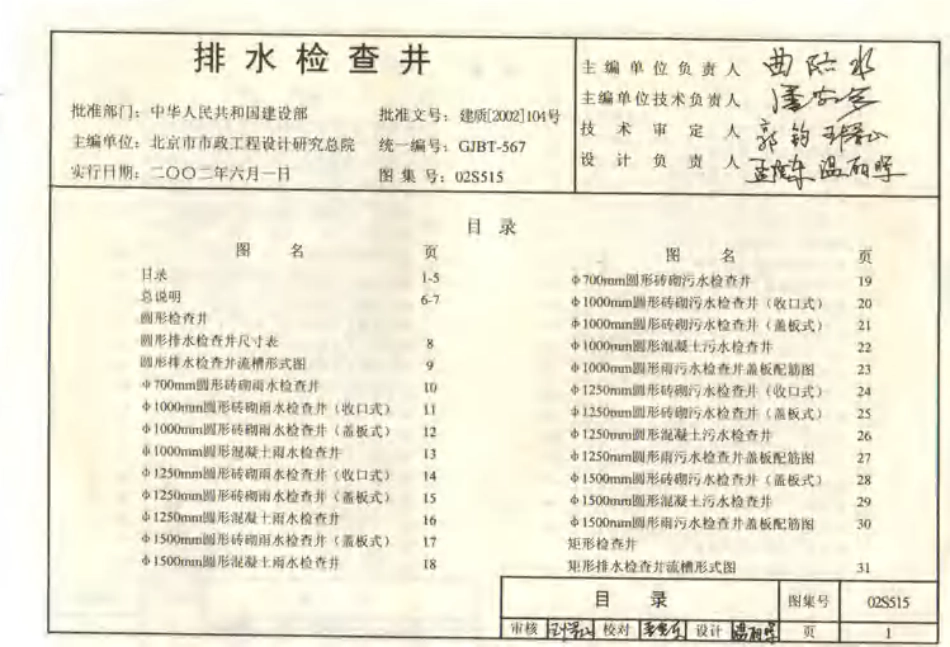 排水检查井
批准部门：中华人民共和国建设部 批准文号：建质[2002]104号
主编单位：北京市市政工程设计研究总院 统一编号：GJBT-567
实行日期：二〇〇二年六月一日 图集号：02S515
主编单位负责人
主编单位技术负责人
技术审定人
设计负责人
目录
图名 页
目录 1-5
总说明 6-7
圆形检查井
圆形排水检查井尺寸表 8
圆形排水检查井流槽形式图 9
φ700mm圆形砖砌雨水检查井 10
φ1000mm圆形砖砌雨水检查井（收口式） 11
φ1000mm圆形砖砌雨水检查井（盖板式） 12
φ1000mm圆形混凝土雨水检查井 13
φ1250mm圆形砖砌雨水检查井（收口式） 14
φ1250mm圆形砖砌雨水检查井（盖板式） 15
φ1250mm圆形混凝土雨水检查井 16
φ1500mm圆形砖砌雨水检查井（盖板式） 17
φ1500mm圆形混凝土雨水检查井 18
图名 页
φ700mm圆形砖砌污水检查井 19
φ1000mm圆形砖砌污水检查井（收口式） 20
φ1000mm圆形砖砌污水检查井（盖板式） 21
φ1000mm圆形混凝土污水检查井 22
φ1000mm圆形雨污水检查井盖板配筋图 23
φ1250mm圆形砖砌污水检查井（收口式） 24
φ1250mm圆形砖砌污水检查井（盖板式） 25
φ1250mm圆形混凝土污水检查井 26
φ1250mm圆形雨污水检查井盖板配筋图 27
φ1500mm圆形砖砌污水检查井（盖板式） 28
φ1500mm圆形混凝土污水检查井 29
φ1500mm圆形雨污水检查井盖板配筋图 30
矩形检查井
矩形排水检查井流槽形式图 31
目录 图集号 02S515
审核 校对 设计 页 1